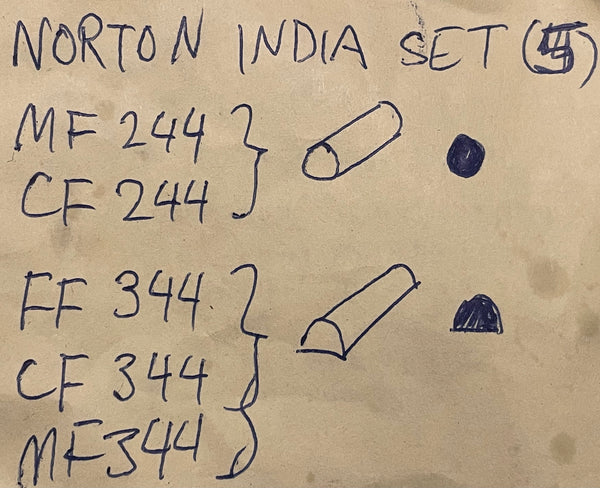 NORTON INDIA SET (5)
MF 244
CF 244
FF 344
CF 344
MF 344